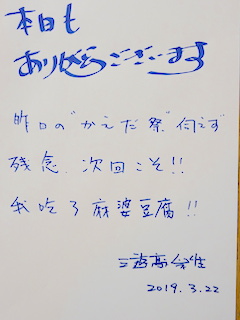 本日も
ありがとうございます
昨日の“かえだ祭”伺えず
残念、次回こそ!!
我吃了麻婆豆腐!!
2019.3.22